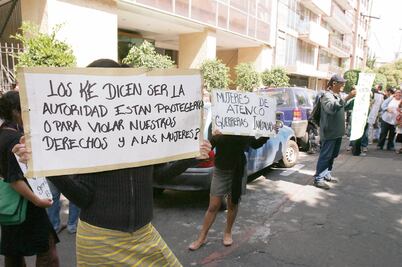 LOS KE DICEN SER LA
AUTORIDAD ESTAN PROTEGER
O PARA VIOLAR NUESTROS
DERECHOS Y A LAS MUJERES?
MUJERES DE
ATENCO
GUERRERAS